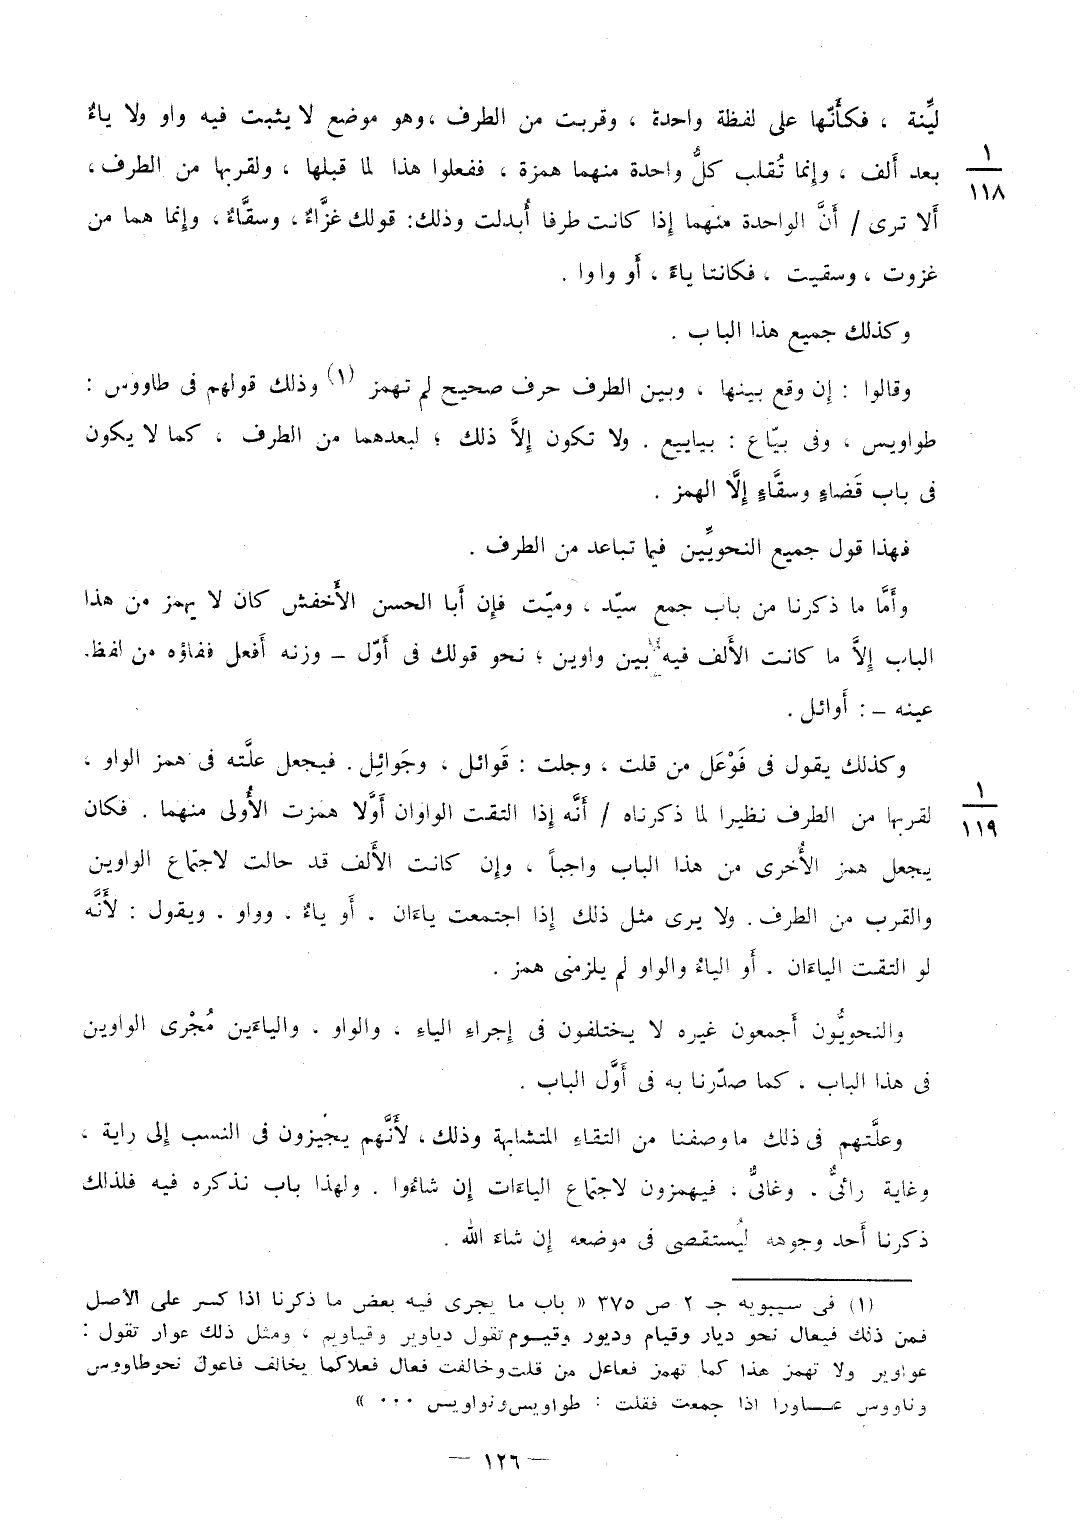 ليِّنة ، فكأَنّها على لفظة واحدة ، وقربت من الطرف ، وهو موضع لا يثبت فيه واو ولا ياءٌ
١
بعد أَلف ، وإنما تُقلب كلُّ واحدة منهما همزة ، ففعلوا هذا لما قبلها ، ولقربها من الطرف ،
١١٨
ألا ترى / أَنَّ الواحدة منهما إذا كانت طرفا أُبدلت وذلك: قولك غزَّاءٌ ، وسقَّاءٌ ، وإنما هما من
غزوت ، وسقيت ، فكانتا ياءً ، أَو واوا .
وكذلك جميع هذا الباب .
وقالوا : إن وقع بينها ، وبين الطرف حرف صحيح لم تهمز (١) وذلك قولهم فى طاووس :
طواويس ، وفى بيّاع : بياييع . ولا تكون إلاَّ ذلك ؛ لبعدهما من الطرف ، كما لا يكون
فى باب قَضاءٍ وسقَّاءٍ إلَّا الهمز .
فهذا قول جميع النحويِّين فيما تباعد من الطرف .
وأَمَّا ما ذكرنا من باب جمع سيّد ، وميّت فإن أَبا الحسن الأَخفش كان لا يهمز من هذا
الباب إلاَّ ما كانت الأَلف فيه بين واوين ؛ نحو قولك فى أَوّل – وزنه أَفعل ففاؤه من لفظ
عينه – : أَوائل .
وكذلك يقول فى فَوْعَل من قلت ، وجلت : قَوائل ، وجَوائِل . فيجعل علَّته فى همز الواو ،
١
لقربها من الطرف نظيرا لما ذكرناه / أَنَّه إذا التقت الواوان أَوَّلا همزت الأُولى منهما . فكان
١١٩
يجعل همز الأُخرى من هذا الباب واجباً ، وإن كانت الأَلف قد حالت لاجتماع الواوين
والقرب من الطرف . ولا يرى مثل ذلك إذا اجتمعت ياءَان . أَو ياءٌ . وواو . ويقول : لأَنَّه
لو التقت الياءَان . أَو الياءُ والواو لم يلزمنى همز .
والنحويُّون أَجمعون غيره لا يختلفون فى إجراء الياءِ ، والواو . والياءَين مُجْرى الواوين
فى هذا الباب ، كما صدّرنا به فى أَوَّل الباب .
وعلَّتهم فى ذلك ما وصفنا من التقاء المتشابهة وذلك ، لأَنَّهم يجيزون فى النسب إلى راية ،
وغاية رائىٌّ . وغائىٌّ ، فيهمزون لاجتماع الياءَات إن شاءُوا . ولهذا باب نذكره فيه فلذلك
ذكرنا أَحد وجوهه ليُستقصى فى موضعه إن شاءَ الله .
(١) فى سيبويه جـ ٢ ص ٣٧٥ « باب ما يجرى فيه بعض ما ذكرنا اذا كسر على الأصل
فمن ذلك فيعال نحو ديار وقيام وديور وقيوم تقول دياوير وقياويم ، ومثل ذلك عوار تقول :
عواوير ولا تهمز هذا كما تهمز فعاعل من قلت وخالفت فعال فعلا كما يخالف فاعول نحو طاووس
وناووس عاورا اذا جمعت فقلت : طواويس ونواويس ٠٠٠ »
— ١٢٦ —